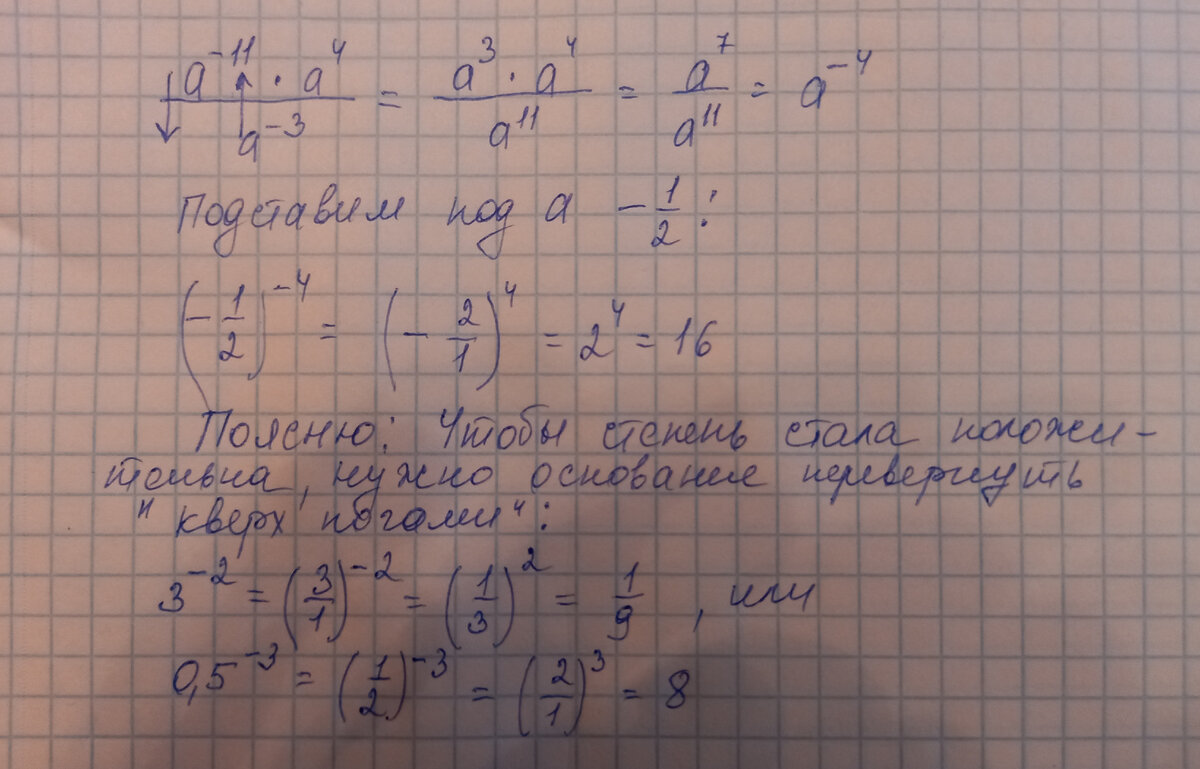 a⁻¹¹ · a⁴ / a⁻³ = a³ · a⁴ / a¹¹ = a⁷ / a¹¹ = a⁻⁴
Подставим под a -1/2:
(-1/2)⁻⁴ = (-2/1)⁴ = 2⁴ = 16
Поясню: Чтобы степень стала положи-
тельна, нужно основание перевернуть
"кверх ногами":
3⁻² = (3/1)⁻² = (1/3)² = 1/9 , или
0,5⁻³ = (1/2)⁻³ = (2/1)³ = 8